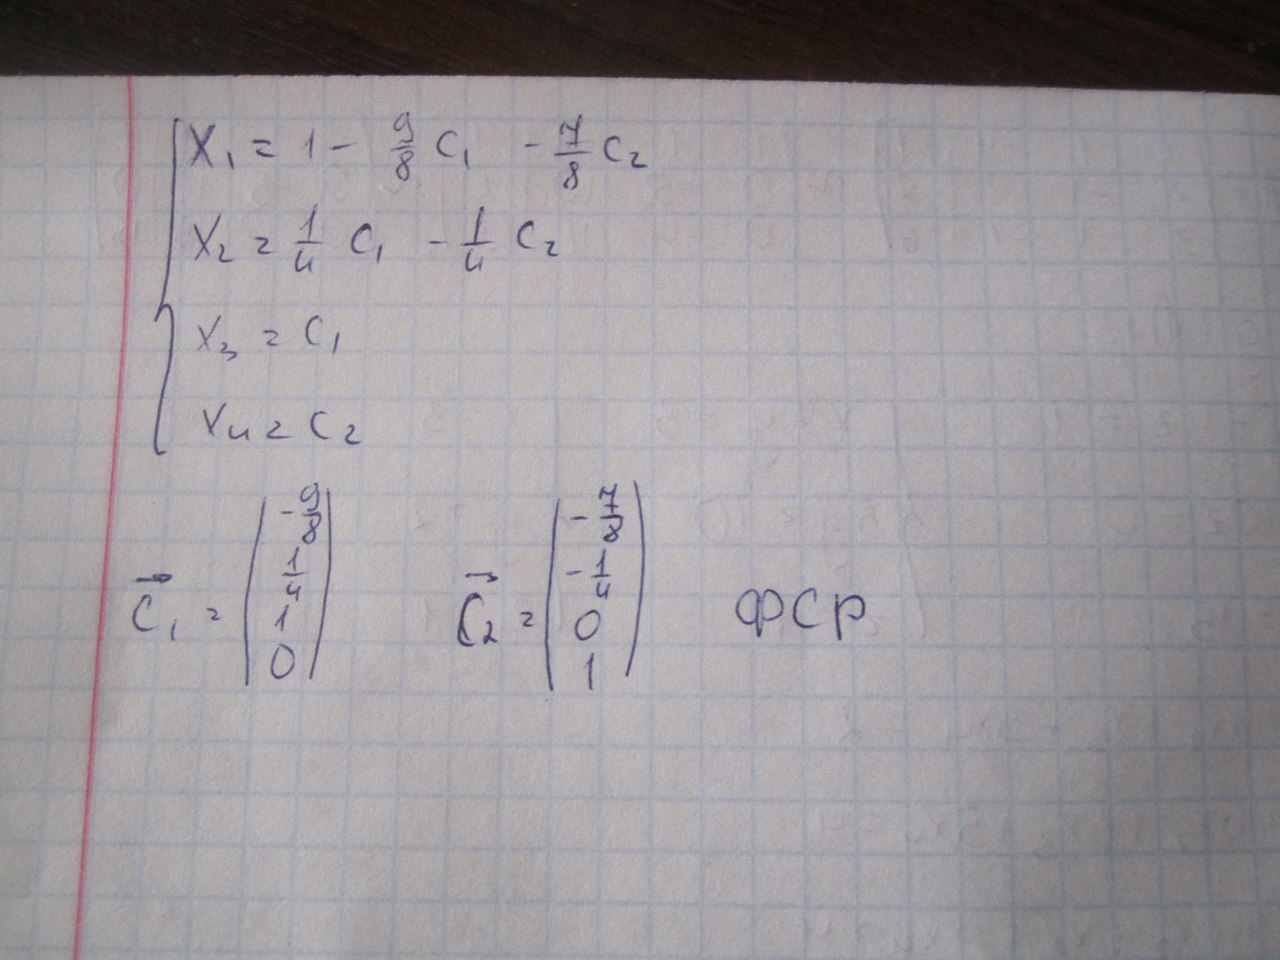 x₁ = 1 - 9/8 c₁ - 7/8 c₂
x₂ = 1/4 c₁ - 1/4 c₂
x₃ = c₁
x₄ = c₂
c⃗₁ = (-9/8 1/4 1 0) c⃗₂ = (-7/8 -1/4 0 1) ФСР